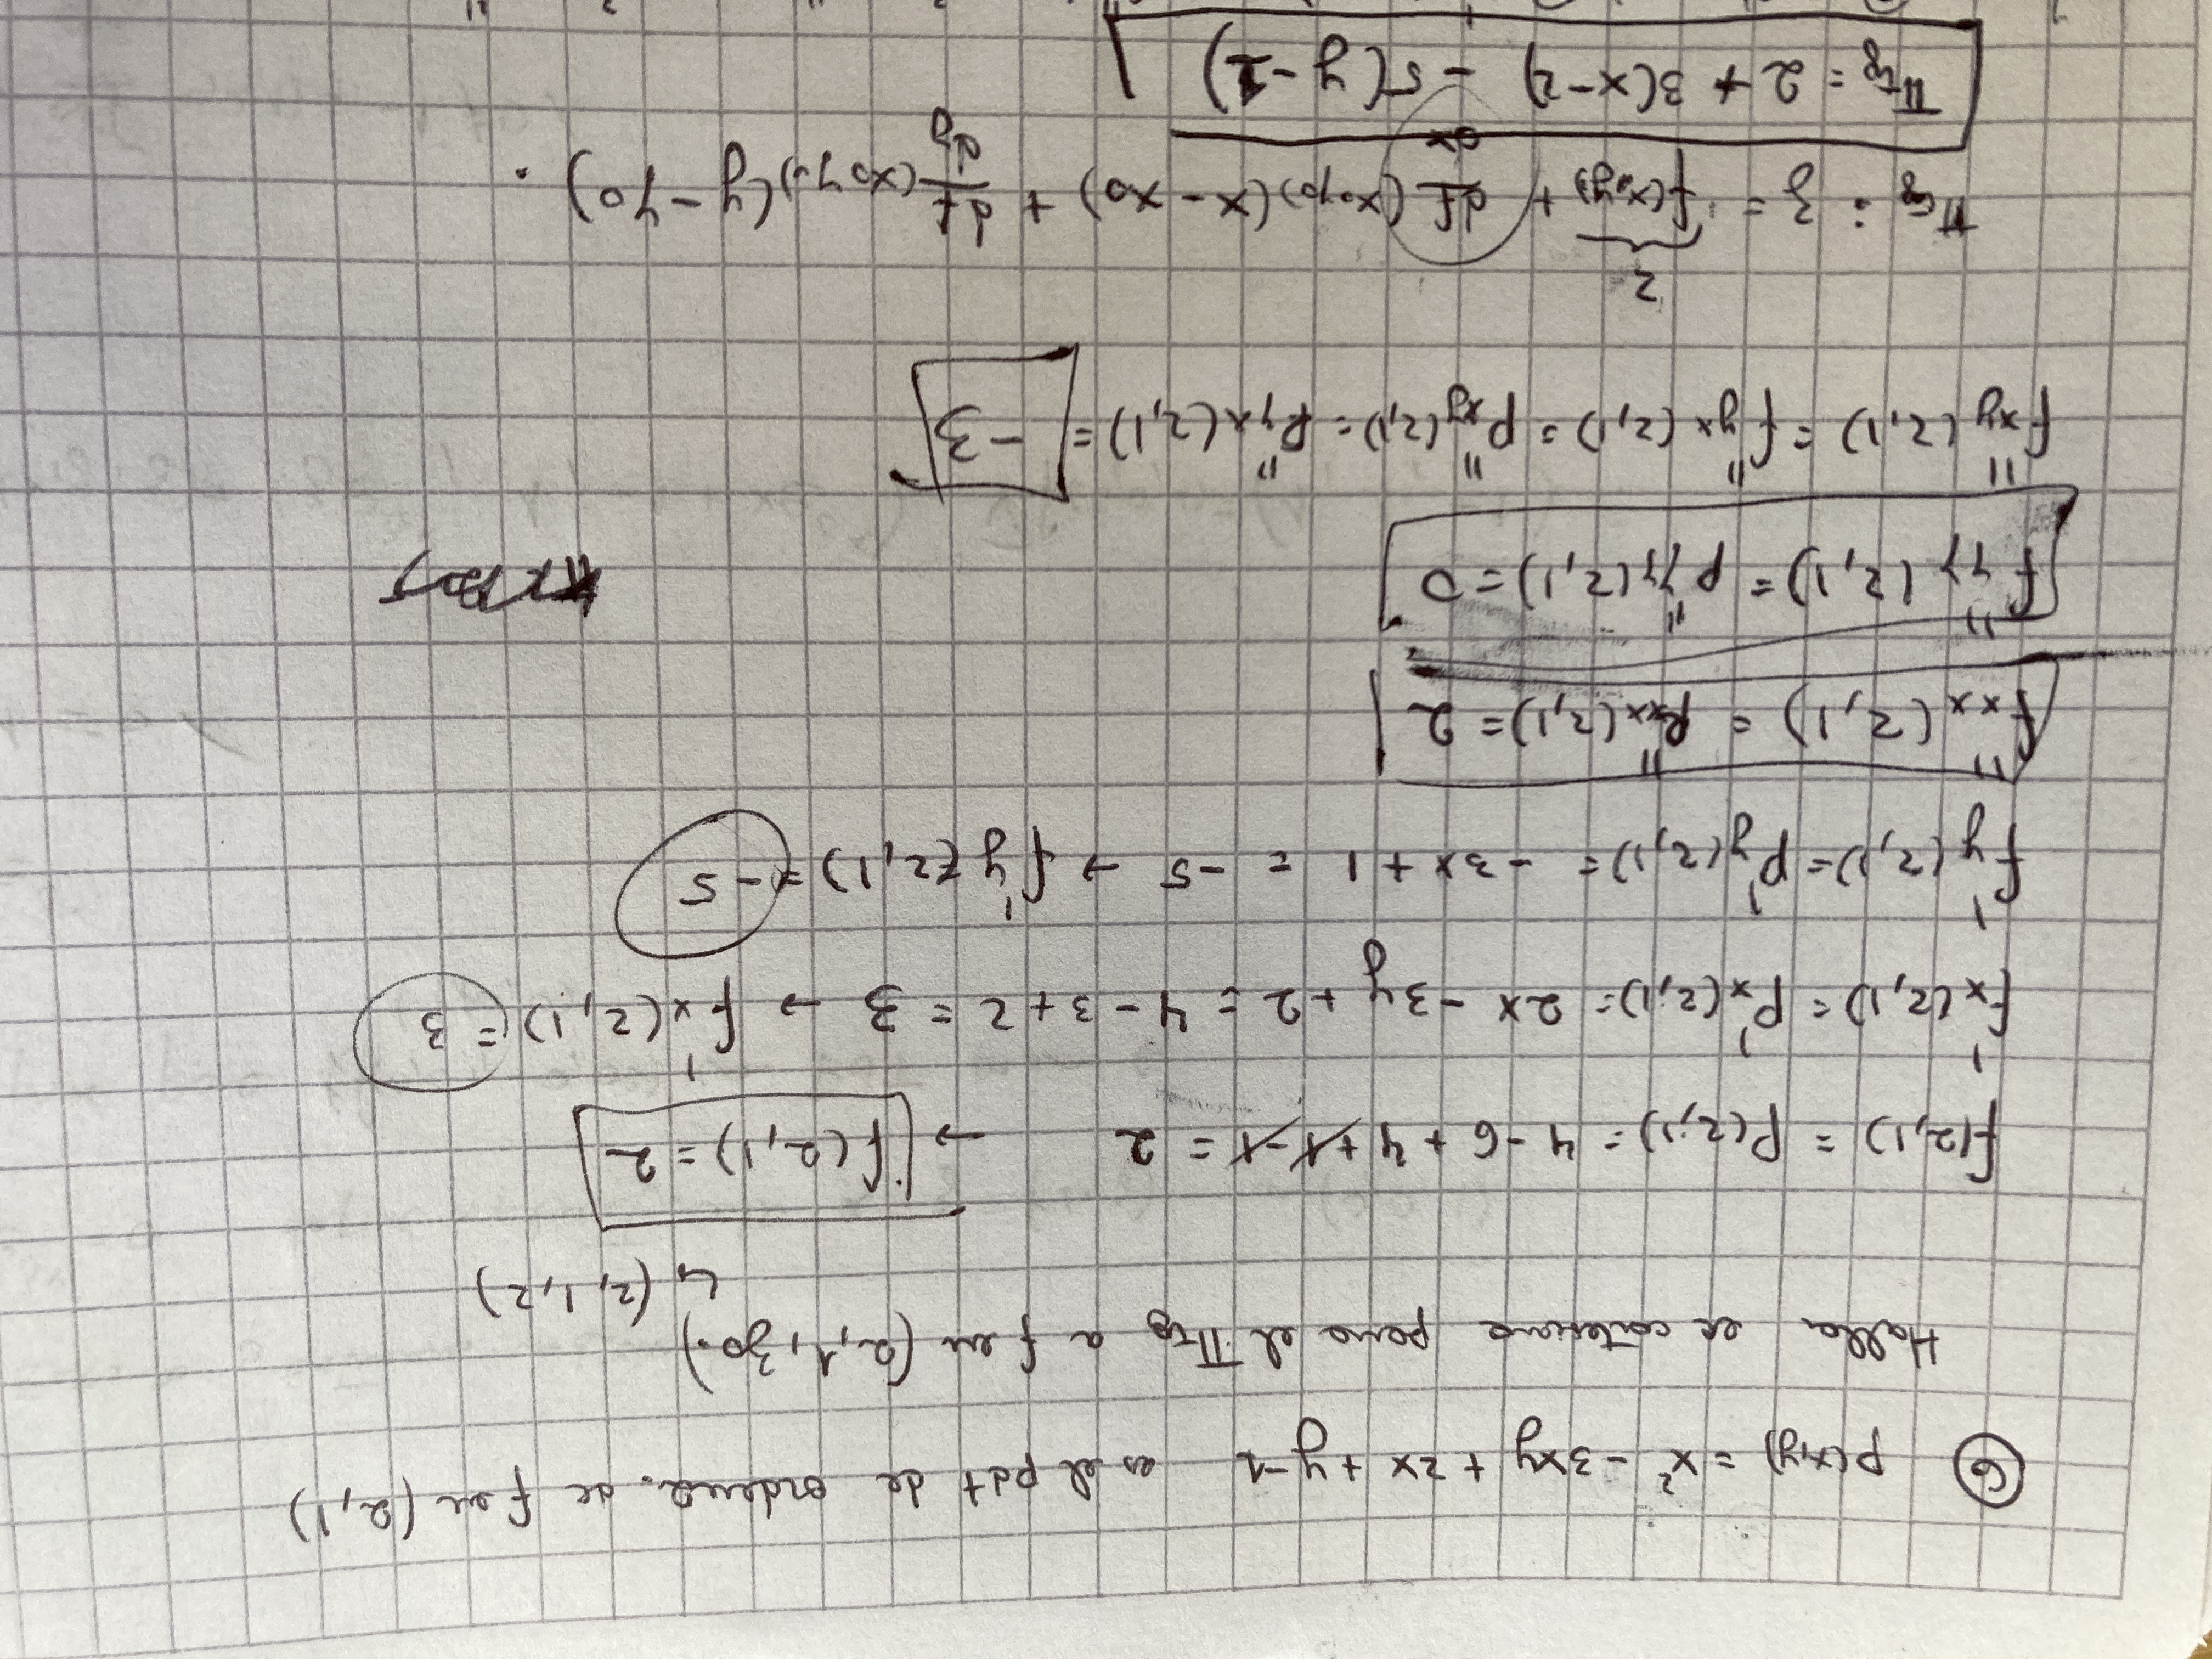 ⑥ P(x,y) = x² - 3xy + 2x + y - 1 es el pdt de orden 2. de f en (2,1)
Halla ec cartesiana para el πtg a f en (2,1,z0.)
↳ (2,1,2)
f(2,1) = P(2,1) = 4 - 6 + 4 + 1 - 1 = 2 → f(2,1) = 2
f'x(2,1) = P'x(2,1) = 2x - 3y + 2 = 4 - 3 + 2 = 3 → f'x(2,1) = 3
f'y(2,1) = P'y(2,1) = -3x + 1 = -5 → f'y(2,1) = -5
f''xx(2,1) = P''xx(2,1) = 2
f''yy(2,1) = P''yy(2,1) = 0
f''xy(2,1) = f''yx(2,1) = P''xy(2,1) = P''yx(2,1) = -3
2
πtg : z = f(x0,y0) + df/dx (x0,y0)(x - x0) + df/dy (x0,y0)(y - y0).
πtg = 2 + 3(x-2) - 5(y-1)